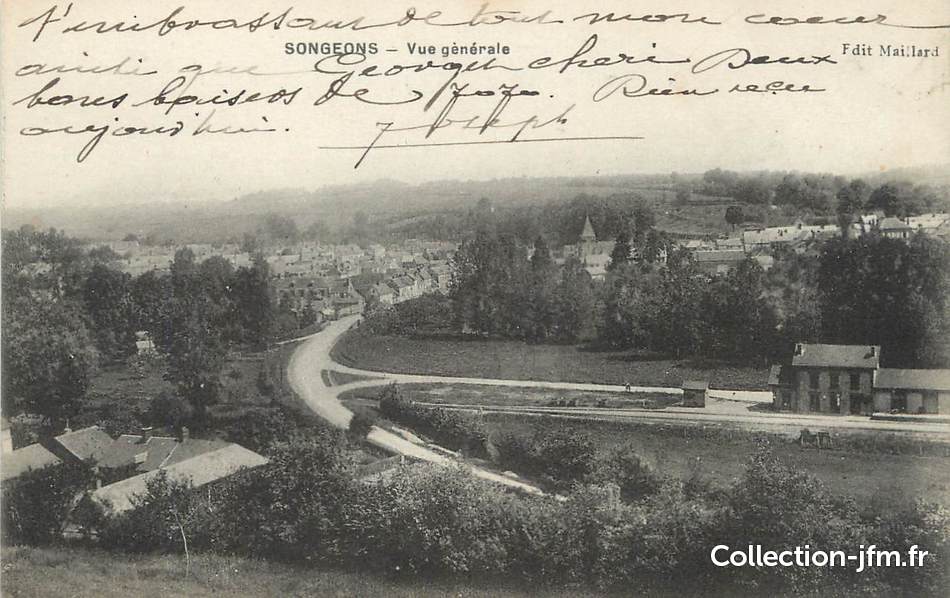 t'embrassant de tout mon coeur
SONGEONS – Vue générale
Edit Maillard
ainsi que Georget cheri Deux
bons baisers de Jojo. Rien reçu
aujourd'hui. Joseph
Collection-jfm.fr